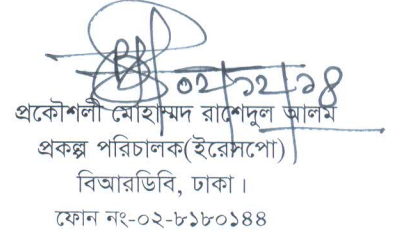 ০২/১২/১৪
প্রকৌশলী মোহাম্মদ রাশেদুল আলম
প্রকল্প পরিচালক(ইরেসপো)
বিআরডিবি, ঢাকা।
ফোন নং-০২-৮১৮০১৪৪